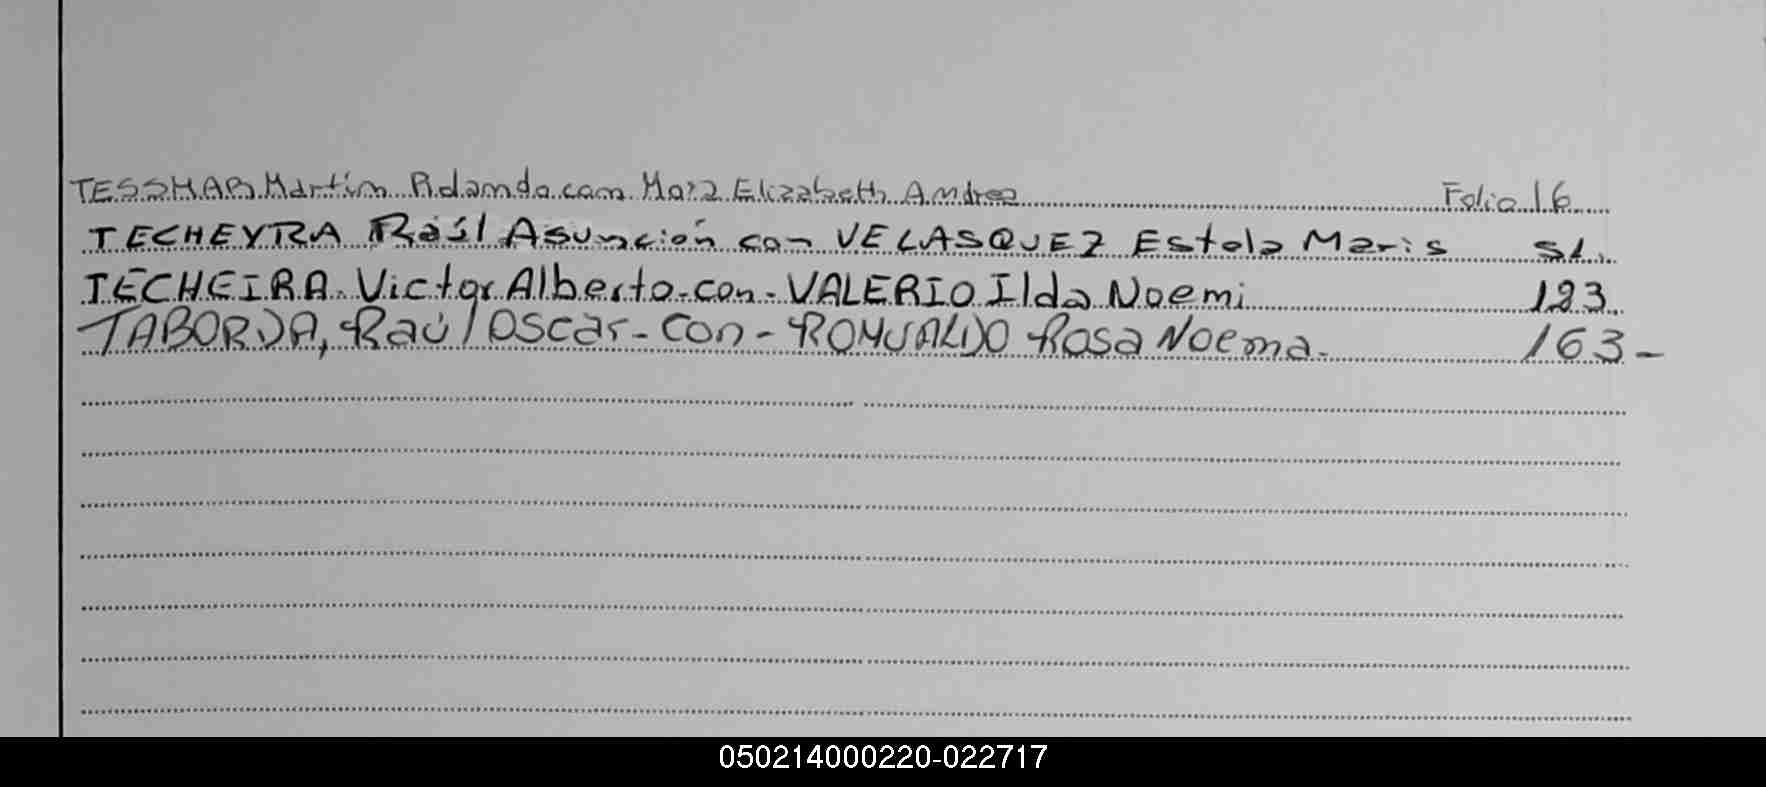 TESSHAB Martin Rolando con Mora Elizabeth Andrea Folio 16
TECHEYRA Raúl Asunción con VELASQUEZ Estela Maris 51.
TECHEIRA Victor Alberto-con-VALERIO Ilda Noemi 123
TABORDA, Raúl Oscar-con-ROMUALDO Rosa Noema. 163-
050214000220-022717